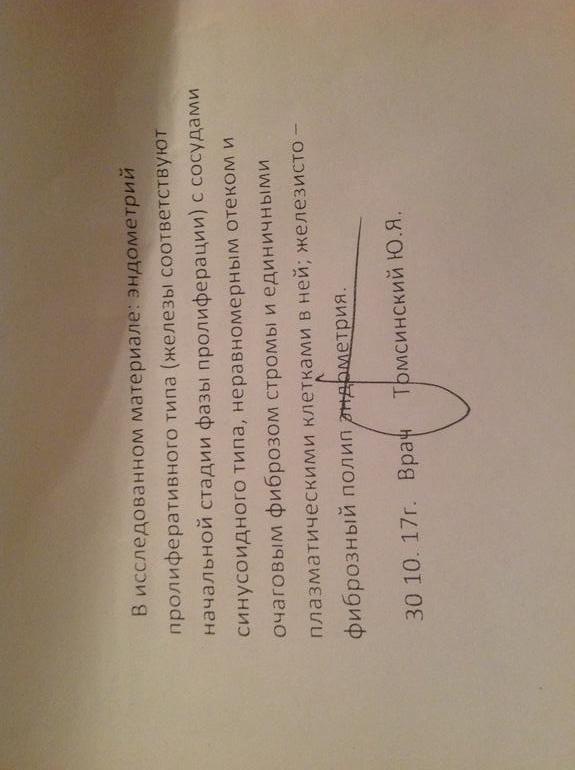 В исследованном материале: эндометрий
пролиферативного типа (железы соответствуют
начальной стадии фазы пролиферации) с сосудами
синусоидного типа, неравномерным отеком и
очаговым фиброзом стромы и единичными
плазматическими клетками в ней; железисто –
фиброзный полип эндометрия.
30 10. 17г. Врач Томсинский Ю.Я.